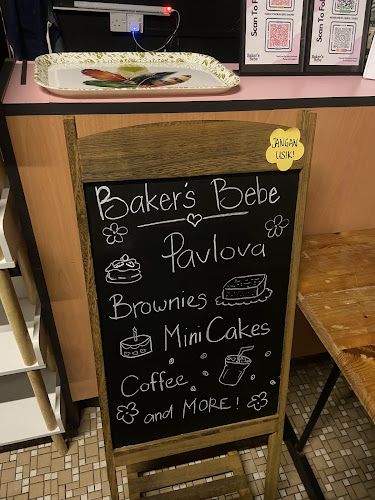 Scan To Follow
Baker's
Bebe
Baker's
Bebe
JANGAN
USIK!
Baker's Bebe
Pavlova
Brownies
Mini Cakes
Coffee
and MORE!